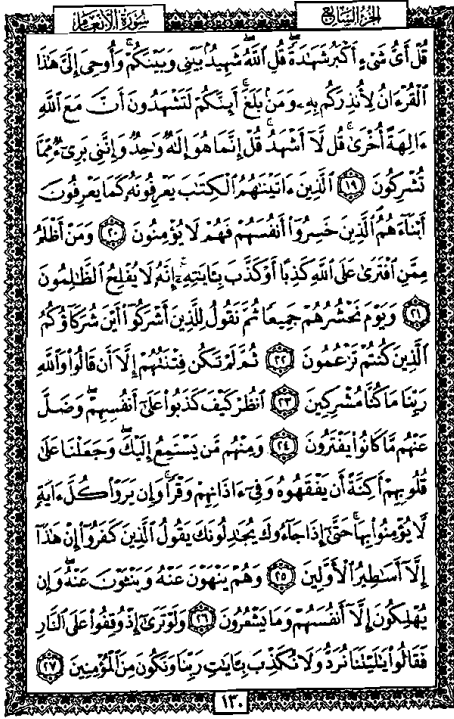 سُورَةُ الأَنْعَامِ
الجزء السابع
قُلْ أَىُّ شَىْءٍ أَكْبَرُ شَهَٰدَةً ۖ قُلِ ٱللَّهُ ۖ شَهِيدٌۢ بَيْنِى وَبَيْنَكُمْ ۚ وَأُوحِىَ إِلَىَّ هَٰذَا
ٱلْقُرْءَانُ لِأُنذِرَكُم بِهِۦ وَمَنۢ بَلَغَ ۚ أَئِنَّكُمْ لَتَشْهَدُونَ أَنَّ مَعَ ٱللَّهِ
ءَالِهَةً أُخْرَىٰ ۚ قُل لَّآ أَشْهَدُ ۚ قُلْ إِنَّمَا هُوَ إِلَٰهٌ وَٰحِدٌ وَإِنَّنِى بَرِىٓءٌ مِّمَّا
تُشْرِكُونَ ١٩ ٱلَّذِينَ ءَاتَيْنَٰهُمُ ٱلْكِتَٰبَ يَعْرِفُونَهُۥ كَمَا يَعْرِفُونَ
أَبْنَآءَهُمُ ٱلَّذِينَ خَسِرُوٓا۟ أَنفُسَهُمْ فَهُمْ لَا يُؤْمِنُونَ ٢٠ وَمَنْ أَظْلَمُ
مِمَّنِ ٱفْتَرَىٰ عَلَى ٱللَّهِ كَذِبًا أَوْ كَذَّبَ بِـَٔايَٰتِهِۦٓ ۗ إِنَّهُۥ لَا يُفْلِحُ ٱلظَّٰلِمُونَ
٢١ وَيَوْمَ نَحْشُرُهُمْ جَمِيعًا ثُمَّ نَقُولُ لِلَّذِينَ أَشْرَكُوٓا۟ أَيْنَ شُرَكَآؤُكُمُ
ٱلَّذِينَ كُنتُمْ تَزْعُمُونَ ٢٢ ثُمَّ لَمْ تَكُن فِتْنَتُهُمْ إِلَّآ أَن قَالُوا۟ وَٱللَّهِ
رَبِّنَا مَا كُنَّا مُشْرِكِينَ ٢٣ ٱنظُرْ كَيْفَ كَذَبُوا۟ عَلَىٰٓ أَنفُسِهِمْ ۚ وَضَلَّ
عَنْهُم مَّا كَانُوا۟ يَفْتَرُونَ ٢٤ وَمِنْهُم مَّن يَسْتَمِعُ إِلَيْكَ ۖ وَجَعَلْنَا عَلَىٰ
قُلُوبِهِمْ أَكِنَّةً أَن يَفْقَهُوهُ وَفِىٓ ءَاذَانِهِمْ وَقْرًا ۚ وَإِن يَرَوْا۟ كُلَّ ءَايَةٍ
لَّا يُؤْمِنُوا۟ بِهَا ۚ حَتَّىٰٓ إِذَا جَآءُوكَ يُجَٰدِلُونَكَ يَقُولُ ٱلَّذِينَ كَفَرُوٓا۟ إِنْ هَٰذَآ
إِلَّآ أَسَٰطِيرُ ٱلْأَوَّلِينَ ٢٥ وَهُمْ يَنْهَوْنَ عَنْهُ وَيَنْـَٔوْنَ عَنْهُ ۖ وَإِن
يُهْلِكُونَ إِلَّآ أَنفُسَهُمْ وَمَا يَشْعُرُونَ ٢٦ وَلَوْ تَرَىٰٓ إِذْ وُقِفُوا۟ عَلَى ٱلنَّارِ
فَقَالُوا۟ يَٰلَيْتَنَا نُرَدُّ وَلَا نُكَذِّبَ بِـَٔايَٰتِ رَبِّنَا وَنَكُونَ مِنَ ٱلْمُؤْمِنِينَ ٢٧
١٣٠